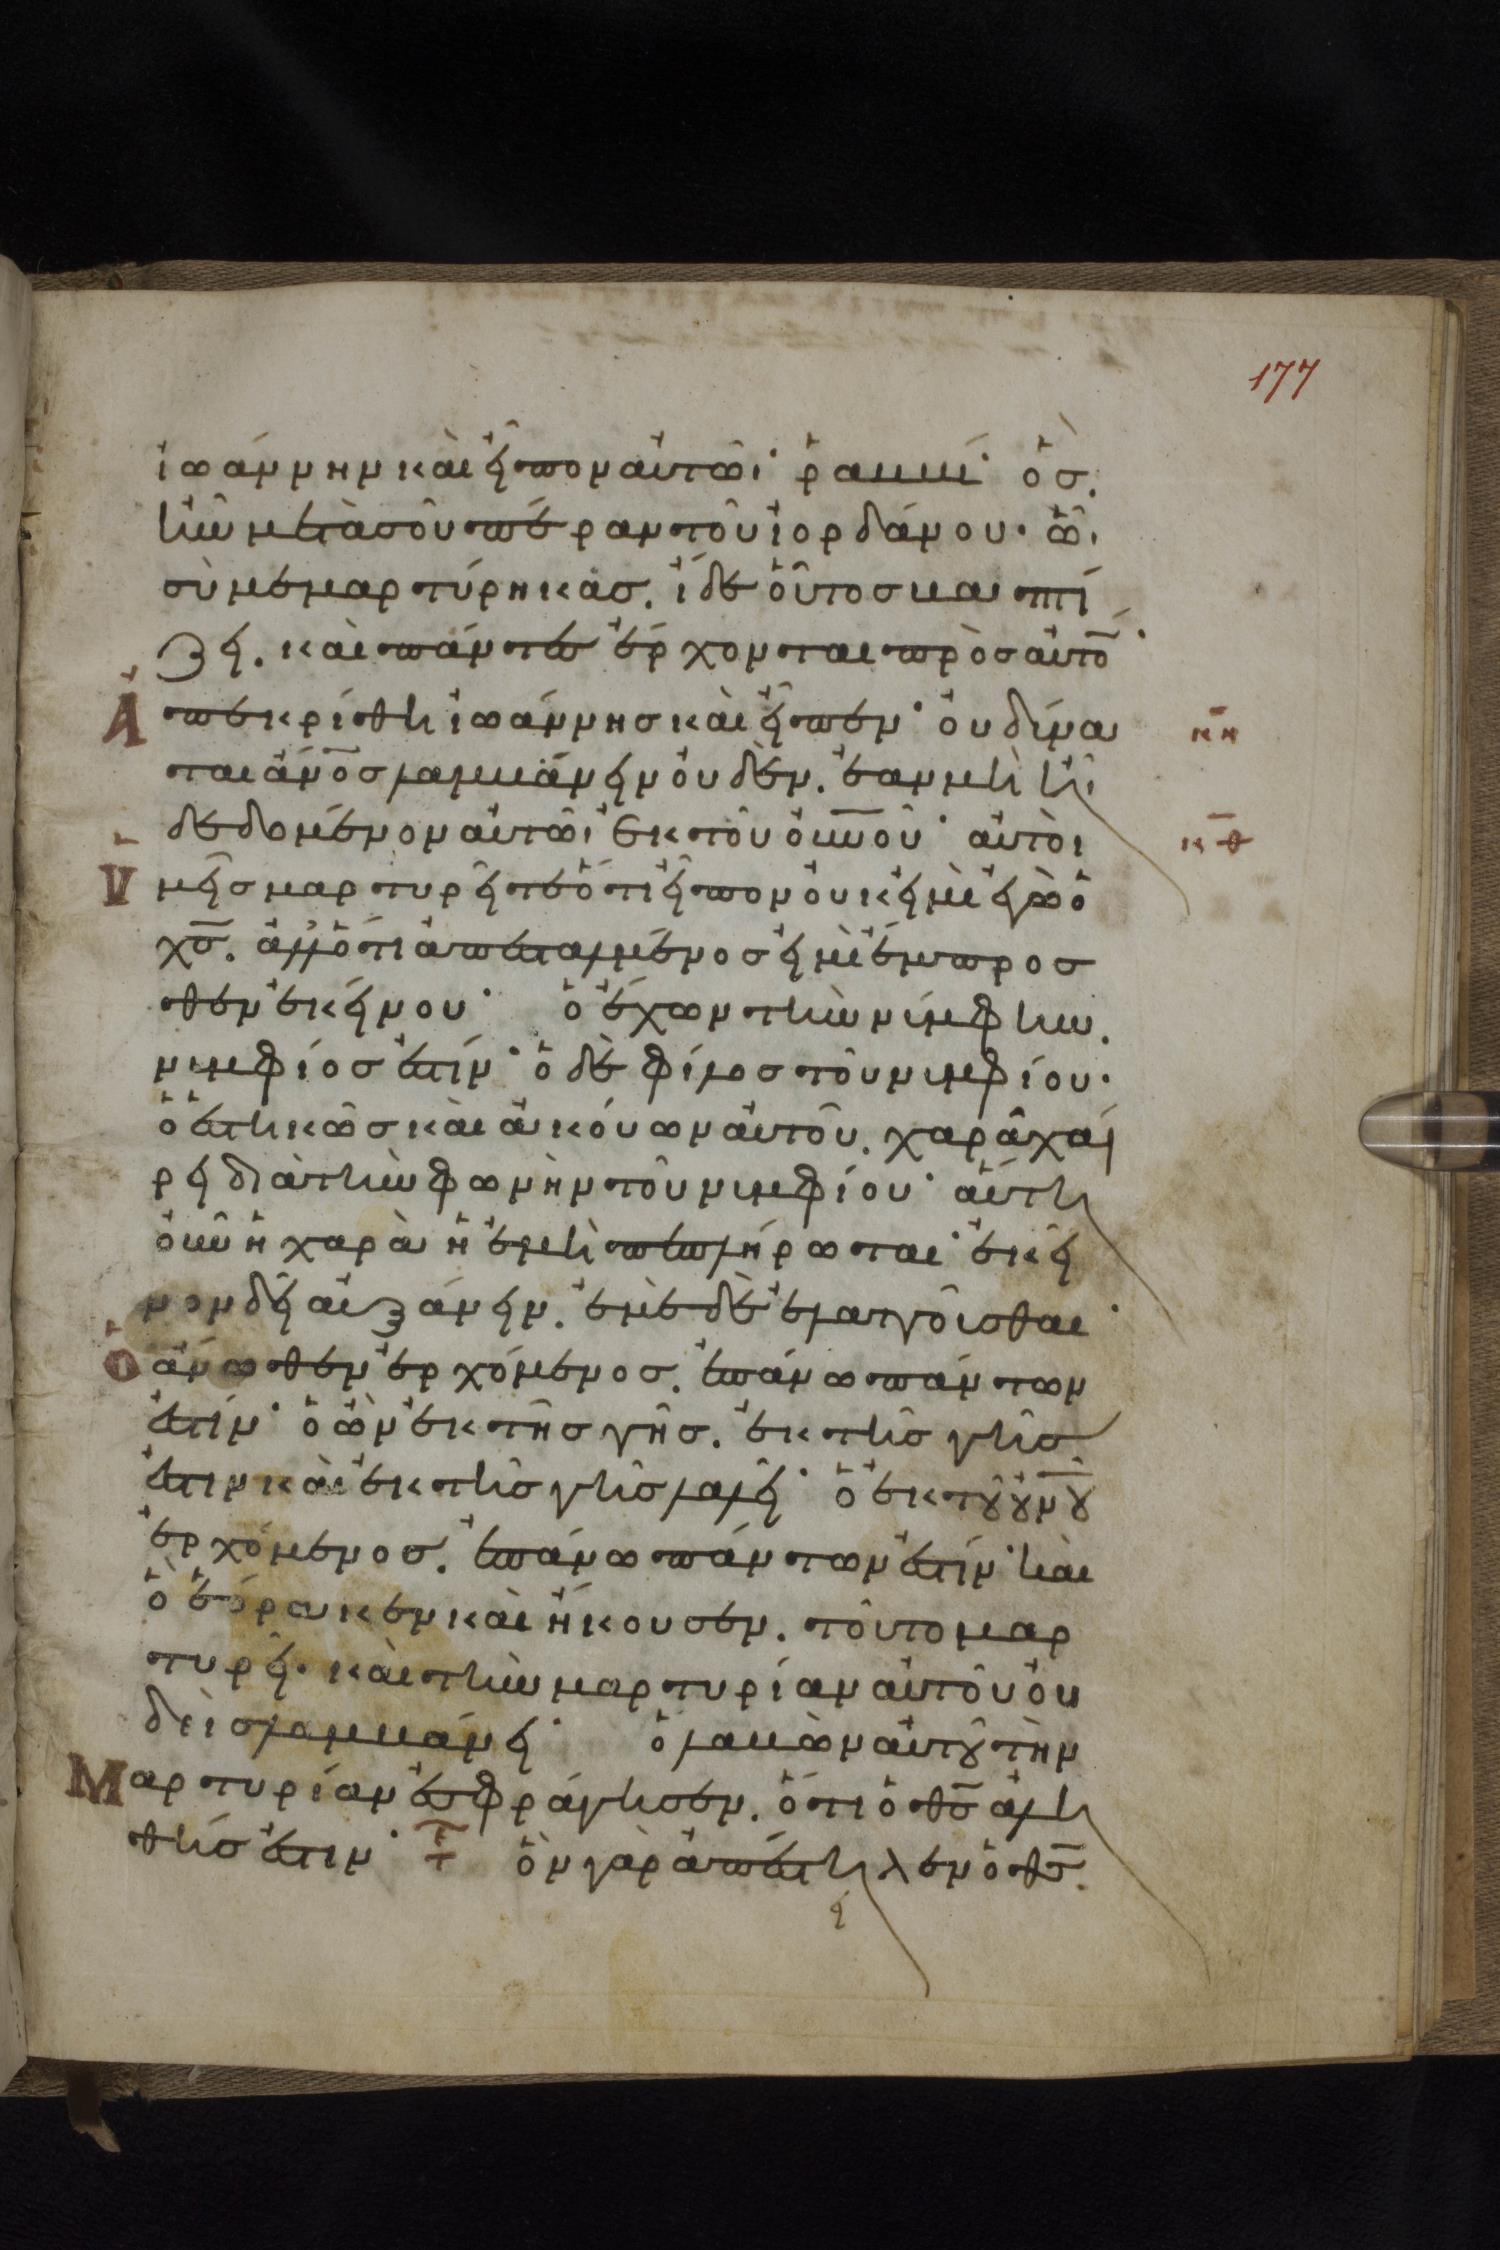 177
ἰωάννην καὶ εἶπον αὐτῶι· ῥαββί· ὃς
ἦν μετὰ σοῦ πέραν τοῦ ἰορδάνου. ὧι
σὺ μεμαρτύρηκας. ἴδε οὗτος βαπτί
ζει. καὶ πάντες ἔρχονται πρὸς αὐτό̅·
Ἀπεκρίθη ἰωάννης καὶ εἶπεν· οὐ δύνα κη̅
ται ἄνο̅σ λαμβάνειν οὐδέν. ἐὰν μὴ ἦι
δεδομένον αὐτῶι ἐκ τοῦ οὐ̅νοῦ· αὐτοὶ κθ̅
Ὑμεῖς μαρτυρεῖτε ὅτι εἶπον οὐκ εἰμὶ ἐγὼ ὁ
χσ̅. ἀλλ' ὅτι ἀπεσταλμένος εἰμὶ ἔμπροσ
θεν ἐκείνου· ὁ ἔχων τὴν νύμφην.
νυμφίος ἐστίν· ὁ δὲ φίλος τοῦ νυμφίου.
ὁ ἑστηκὼς καὶ ἀκούων αὐτοῦ. χαρᾶ χαί
ρει διὰ τὴν φωνὴν τοῦ νυμφίου· αὕτη
οὖν ἡ χαρὰ ἡ ἐμὴ πεπλήρωται· ἐκεῖ
νον δεῖ αὐξάνειν. ἐμὲ δὲ ἐλαττοῦσθαι·
Ὁ ἄνωθεν ἐρχόμενος. ἐπάνω πάντων
ἐστίν· ὁ ὢν ἐκ τῆς γῆς. ἐκ τῆς γῆς
ἐστιν καὶ ἐκ τῆς γῆς λαλεῖ· ὁ ἐκ τοῦ οὐ̅νοῦ
ἐρχόμενος. ἐπάνω πάντων ἐστίν· καὶ
ὃ ἑόρακεν καὶ ἤκουσεν. τοῦτο μαρ
τυρεῖ. καὶ τὴν μαρτυρίαν αὐτοῦ οὐ
δεὶς λαμβάνει· ὁ λαβὼν αὐτοῦ τὴν
Μαρτυρίαν ἐσφράγισεν. ὅτι ὁ θσ̅ ἀλη
θής ἐστιν· τε ὃν γὰρ ἀπέστηλεν ὁ θσ̅.
εί